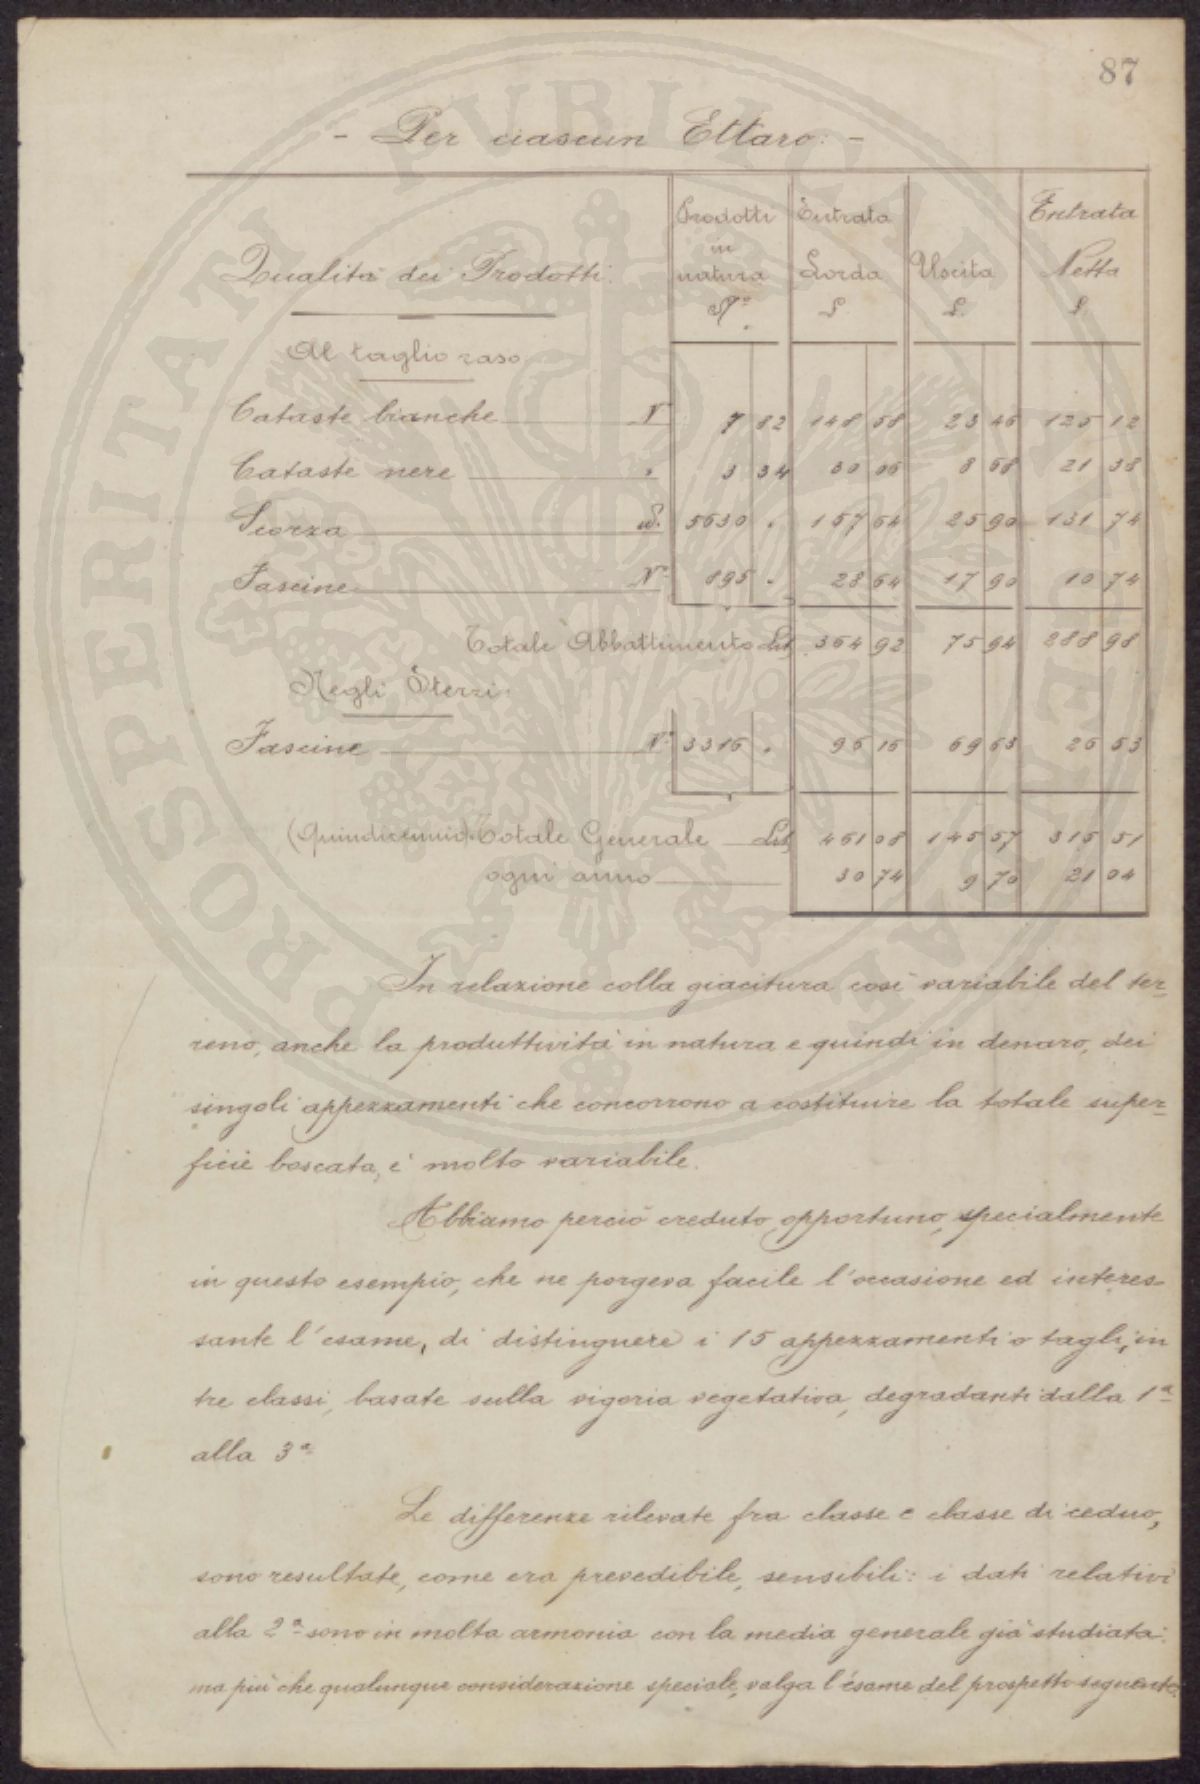 87
- Per ciascun Ettaro: -
Qualità dei Prodotti. Prodotti in natura N° Entrata Lorda L. Uscita L. Entrata Netta L.
Al taglio raso
Cataste bianche N° 7 82 148 58 23 46 125 12
Cataste nere " 3 34 30 06 8 68 21 38
Scorza 5630 . 157 64 25 90 131 74
Fascine N° 895 . 28 64 17 90 10 74
Totale Abbattimento Lit 364 92 75 94 288 98
Negli Sterzi:
Fascine N° 3316 . 96 16 69 63 26 53
(Quindicennio) Totale Generale Lit 461 08 145 57 315 51
ogni anno 30 74 9 70 21 04
In relazione colla giacitura così variabile del ter=
reno, anche la produttività in natura e quindi in denaro, dei
singoli appezzamenti che concorrono a costituire la totale super=
ficie boscata, è molto variabile.
Abbiamo perciò creduto opportuno, specialmente
in questo esempio, che ne porgeva facile l'occasione ed interes-
sante l'esame, di distinguere i 15 appezzamenti o tagli, in
tre classi, basate sulla vigoria vegetativa, degradanti dalla 1ª
alla 3ª
Le differenze rilevate fra classe e classe di ceduo,
sono resultate, come era prevedibile, sensibili: i dati relativi
alla 2ª sono in molta armonia con la media generale già studiata:
ma più che qualunque considerazione speciale, valga l'esame del prospetto seguente:
PROSPERITATI PVBLICAE AVGENDAE